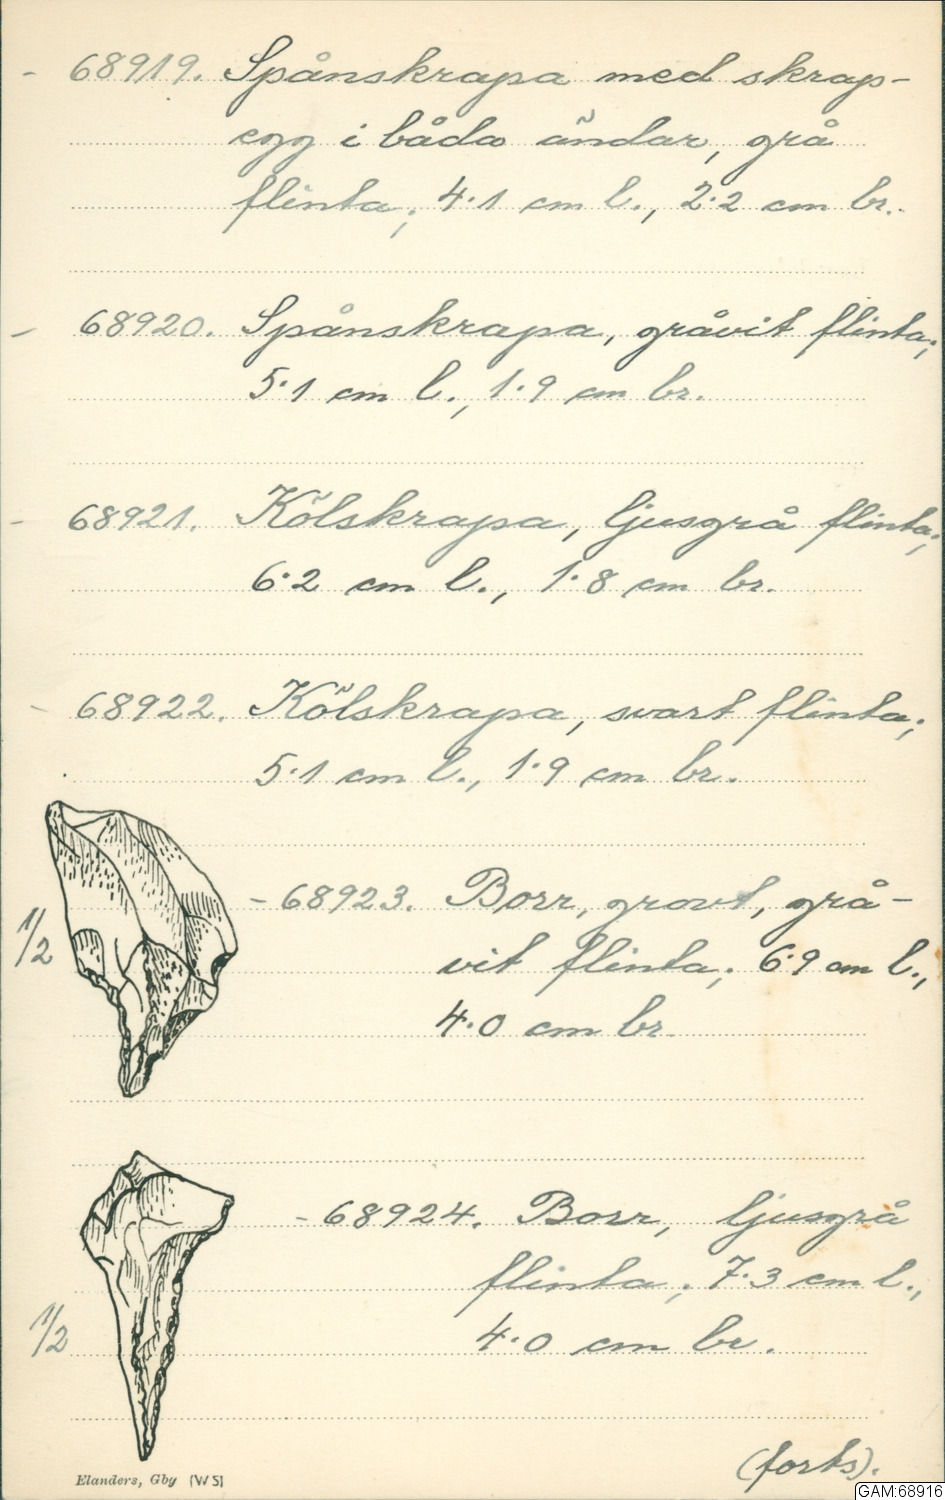 - 68919. Spånskrapa med skrap-
egg i båda ändar, grå
flinta; 4·1 cm l., 2·2 cm br.
- 68920. Spånskrapa, gråvit flinta;
5·1 cm l., 1·9 cm br.
- 68921. Kölskrapa, ljusgrå flinta;
6·2 cm l., 1·8 cm br.
- 68922. Kölskrapa, svart flinta;
5·1 cm l., 1·9 cm br.
- 68923. Borr, grovt, grå-
1/2
vit flinta; 6·9 cm l.,
4·0 cm br.
- 68924. Borr, ljusgrå
flinta; 7·3 cm l.,
1/2
4·0 cm br.
(forts).
Elanders, Gby (WS)
GAM:68916